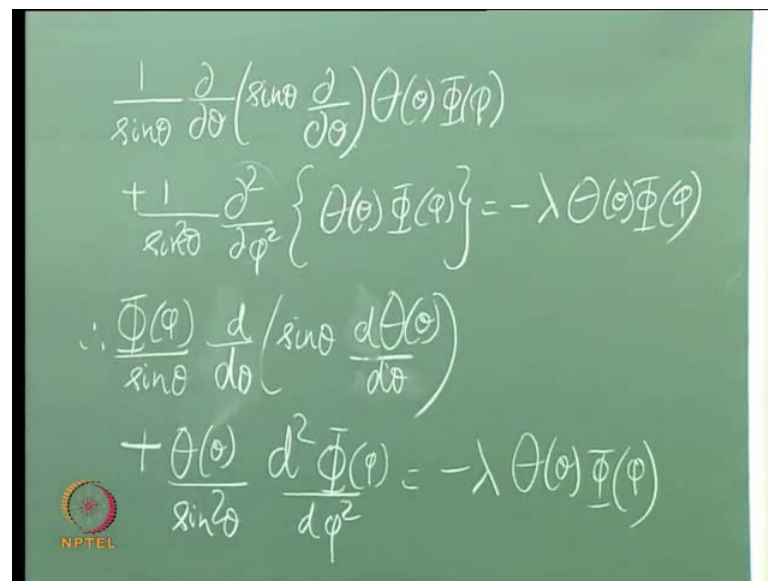 1/sinθ ∂/∂θ (sinθ ∂/∂θ) Θ(θ) Φ(φ)
+ 1/sin²θ ∂²/∂φ² { Θ(θ) Φ(φ) } = -λ Θ(θ) Φ(φ)
∴ Φ(φ)/sinθ d/dθ (sinθ dΘ(θ)/dθ)
+ Θ(θ)/sin²θ d²Φ(φ)/dφ² = -λ Θ(θ) Φ(φ)
NPTEL